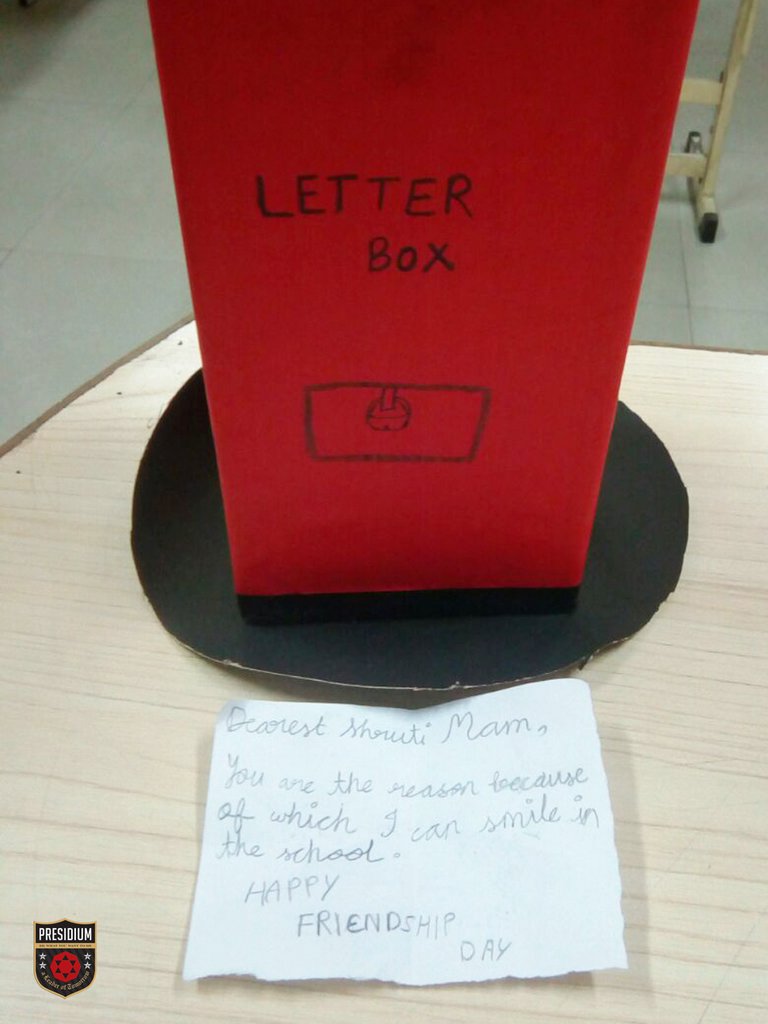 LETTER
BOX
Dearest Shruti Mam,
You are the reason because
of which I can smile in
the school.
HAPPY
FRIENDSHIP
DAY
PRESIDIUM
BE WHAT YOU WANT TO BE
A Leader of Tomorrow